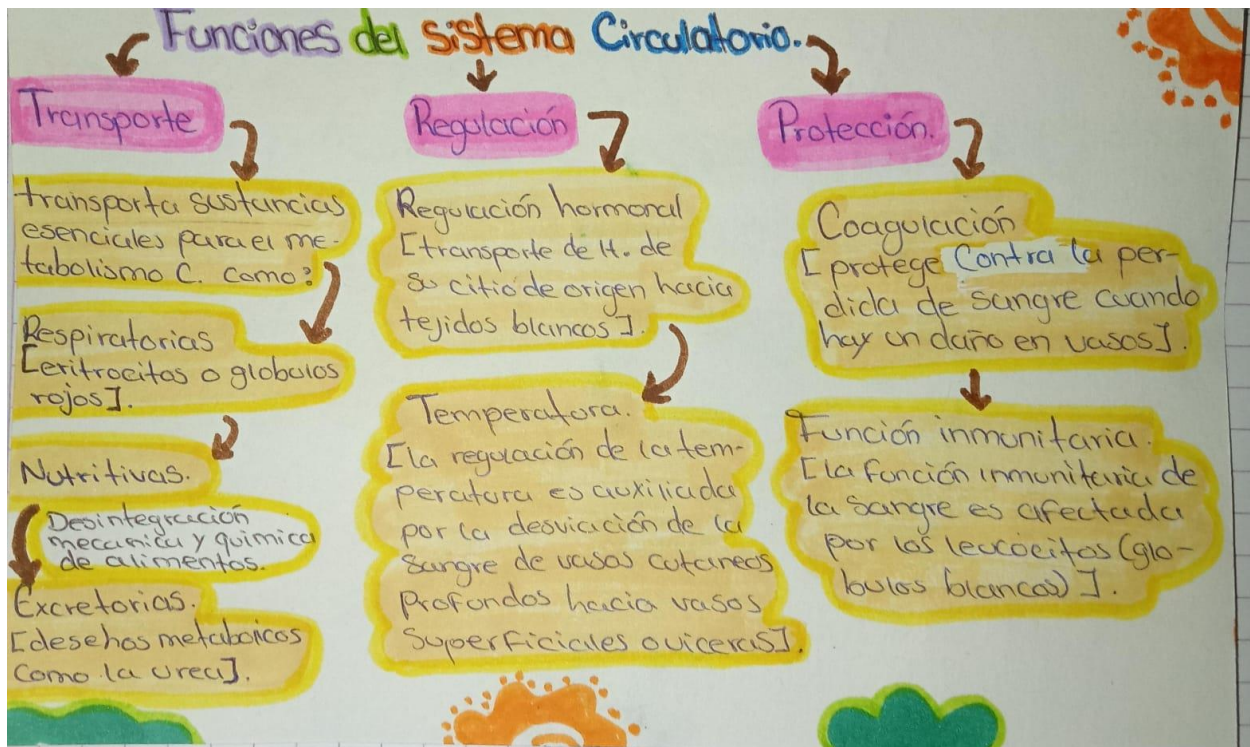 Funciones del sistema Circulatorio.
Transporte
transporta sustancias
esenciales para el me-
tabolismo C. como:
Respiratorias
[eritrocitos o globulos
rojos].
Nutritivas.
Desintegración
mecanica y quimica
de alimentos.
Excretorias.
[desehos metabolicos
como la urea].
Regulación
Regulación hormonal
[transporte de H. de
su citio de origen hacia
tejidos blancos].
Temperatura.
[la regulación de la tem-
peratura es auxiliada
por la desviación de la
sangre de vasos cutaneos
profondos hacia vasos
superficiales o viceras].
Protección.
Coagulación
[protege Contra la per-
dida de sangre cuando
hay un daño en vasos].
Función inmunitaria.
[la función inmunitaria de
la sangre es afectada
por los leucocitos (glo-
bulos blancos)].